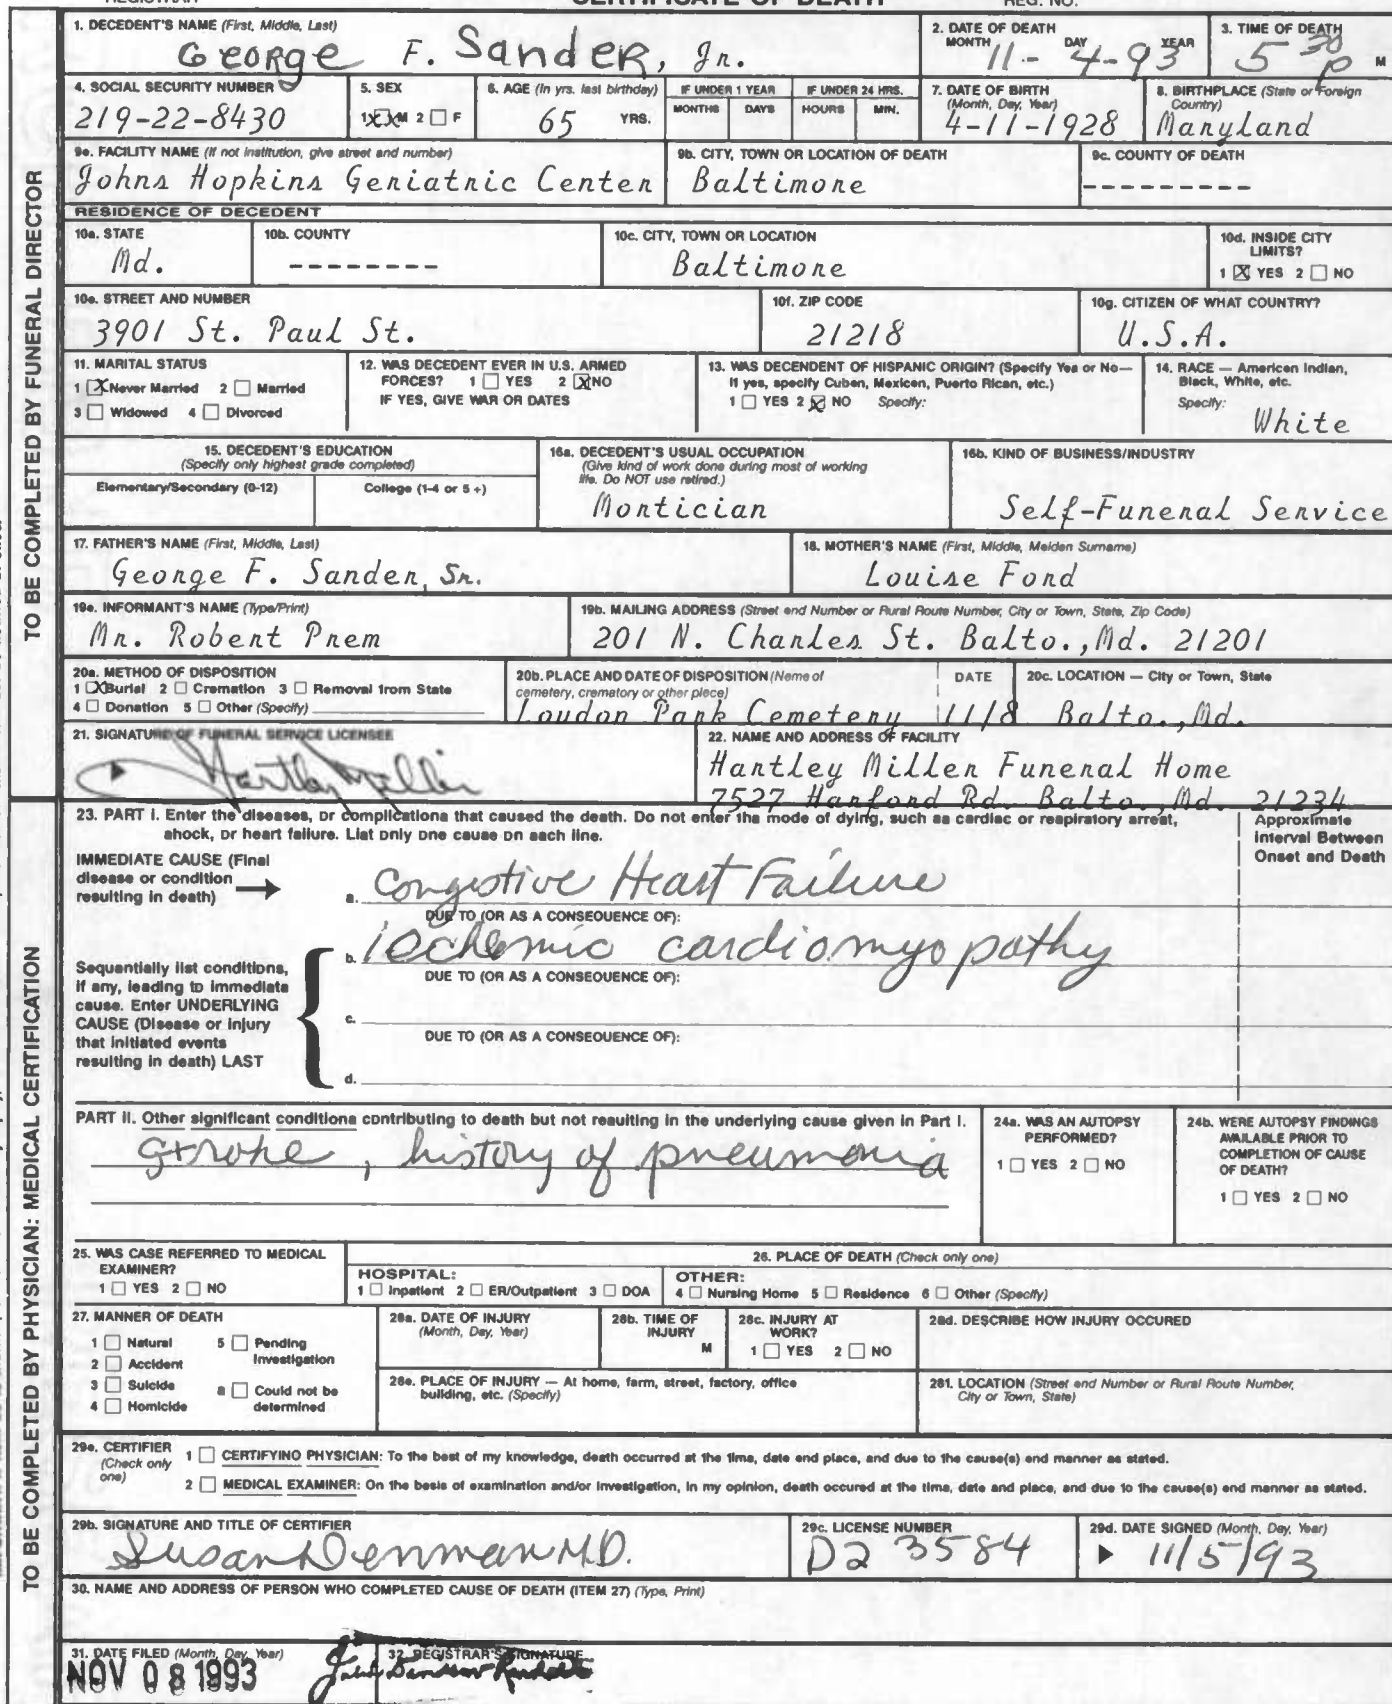 REGISTRAR CERTIFICATE OF DEATH REG. NO.
1. DECEDENT'S NAME (First, Middle, Last)
George F. Sander, Jr.
2. DATE OF DEATH
MONTH DAY YEAR
11-4-93
3. TIME OF DEATH
5 30 p M
4. SOCIAL SECURITY NUMBER
219-22-8430
5. SEX
1 XX M 2 F
6. AGE (In yrs. last birthday)
65 YRS.
IF UNDER 1 YEAR
MONTHS DAYS
IF UNDER 24 HRS.
HOURS MIN.
7. DATE OF BIRTH
(Month, Day, Year)
4-11-1928
8. BIRTHPLACE (State or Foreign Country)
Maryland
9a. FACILITY NAME (If not institution, give street and number)
Johns Hopkins Geriatric Center
9b. CITY, TOWN OR LOCATION OF DEATH
Baltimore
9c. COUNTY OF DEATH
----------
RESIDENCE OF DECEDENT
10a. STATE
Md.
10b. COUNTY
--------
10c. CITY, TOWN OR LOCATION
Baltimore
10d. INSIDE CITY LIMITS?
1 X YES 2 NO
10e. STREET AND NUMBER
3901 St. Paul St.
10f. ZIP CODE
21218
10g. CITIZEN OF WHAT COUNTRY?
U.S.A.
11. MARITAL STATUS
1 X Never Married 2 Married
3 Widowed 4 Divorced
12. WAS DECEDENT EVER IN U.S. ARMED
FORCES? 1 YES 2 X NO
IF YES, GIVE WAR OR DATES
13. WAS DECENDENT OF HISPANIC ORIGIN? (Specify Yes or No—
If yes, specify Cuban, Mexican, Puerto Rican, etc.)
1 YES 2 X NO Specify:
14. RACE — American Indian,
Black, White, etc.
Specify:
White
15. DECEDENT'S EDUCATION
(Specify only highest grade completed)
Elementary/Secondary (0-12) College (1-4 or 5+)
16a. DECEDENT'S USUAL OCCUPATION
(Give kind of work done during most of working
life. Do NOT use retired.)
Mortician
16b. KIND OF BUSINESS/INDUSTRY
Self-Funeral Service
17. FATHER'S NAME (First, Middle, Last)
George F. Sander, Sr.
18. MOTHER'S NAME (First, Middle, Maiden Surname)
Louise Ford
19a. INFORMANT'S NAME (Type/Print)
Mr. Robert Prem
19b. MAILING ADDRESS (Street and Number or Rural Route Number, City or Town, State, Zip Code)
201 N. Charles St. Balto., Md. 21201
20a. METHOD OF DISPOSITION
1 X Burial 2 Cremation 3 Removal from State
4 Donation 5 Other (Specify)
20b. PLACE AND DATE OF DISPOSITION (Name of
cemetery, crematory or other place)
Loudon Park Cemetery
DATE
11/8
20c. LOCATION — City or Town, State
Balto., Md.
21. SIGNATURE OF FUNERAL SERVICE LICENSEE
Hartley Miller
22. NAME AND ADDRESS OF FACILITY
Hartley Miller Funeral Home
7527 Harford Rd. Balto., Md. 21234
TO BE COMPLETED BY FUNERAL DIRECTOR
23. PART I. Enter the diseases, or complications that caused the death. Do not enter the mode of dying, such as cardiac or respiratory arrest,
shock, or heart failure. List only one cause on each line.
Approximate
Interval Between
Onset and Death
IMMEDIATE CAUSE (Final
disease or condition
resulting in death)
a. Congestive Heart Failure
DUE TO (OR AS A CONSEQUENCE OF):
b. ischemic cardiomyopathy
DUE TO (OR AS A CONSEQUENCE OF):
Sequentially list conditions,
if any, leading to immediate
cause. Enter UNDERLYING
CAUSE (Disease or injury
that initiated events
resulting in death) LAST
c.
DUE TO (OR AS A CONSEQUENCE OF):
d.
PART II. Other significant conditions contributing to death but not resulting in the underlying cause given in Part I.
stroke, history of pneumonia
24a. WAS AN AUTOPSY
PERFORMED?
1 YES 2 NO
24b. WERE AUTOPSY FINDINGS
AVAILABLE PRIOR TO
COMPLETION OF CAUSE
OF DEATH?
1 YES 2 NO
25. WAS CASE REFERRED TO MEDICAL
EXAMINER?
1 YES 2 NO
26. PLACE OF DEATH (Check only one)
HOSPITAL:
1 Inpatient 2 ER/Outpatient 3 DOA
OTHER:
4 Nursing Home 5 Residence 6 Other (Specify)
27. MANNER OF DEATH
1 Natural 5 Pending
Investigation
2 Accident
3 Suicide 8 Could not be
determined
4 Homicide
28a. DATE OF INJURY
(Month, Day, Year)
28b. TIME OF
INJURY
M
28c. INJURY AT
WORK?
1 YES 2 NO
28d. DESCRIBE HOW INJURY OCCURED
28e. PLACE OF INJURY — At home, farm, street, factory, office
building, etc. (Specify)
28f. LOCATION (Street and Number or Rural Route Number,
City or Town, State)
29a. CERTIFIER
(Check only
one)
1 CERTIFYING PHYSICIAN: To the best of my knowledge, death occurred at the time, date and place, and due to the cause(s) and manner as stated.
2 MEDICAL EXAMINER: On the basis of examination and/or investigation, in my opinion, death occured at the time, date and place, and due to the cause(s) and manner as stated.
29b. SIGNATURE AND TITLE OF CERTIFIER
Susan Denman M.D.
29c. LICENSE NUMBER
D23584
29d. DATE SIGNED (Month, Day, Year)
11/5/93
30. NAME AND ADDRESS OF PERSON WHO COMPLETED CAUSE OF DEATH (ITEM 27) (Type, Print)
31. DATE FILED (Month, Day, Year)
NOV 08 1993
32. REGISTRAR'S SIGNATURE
TO BE COMPLETED BY PHYSICIAN: MEDICAL CERTIFICATION